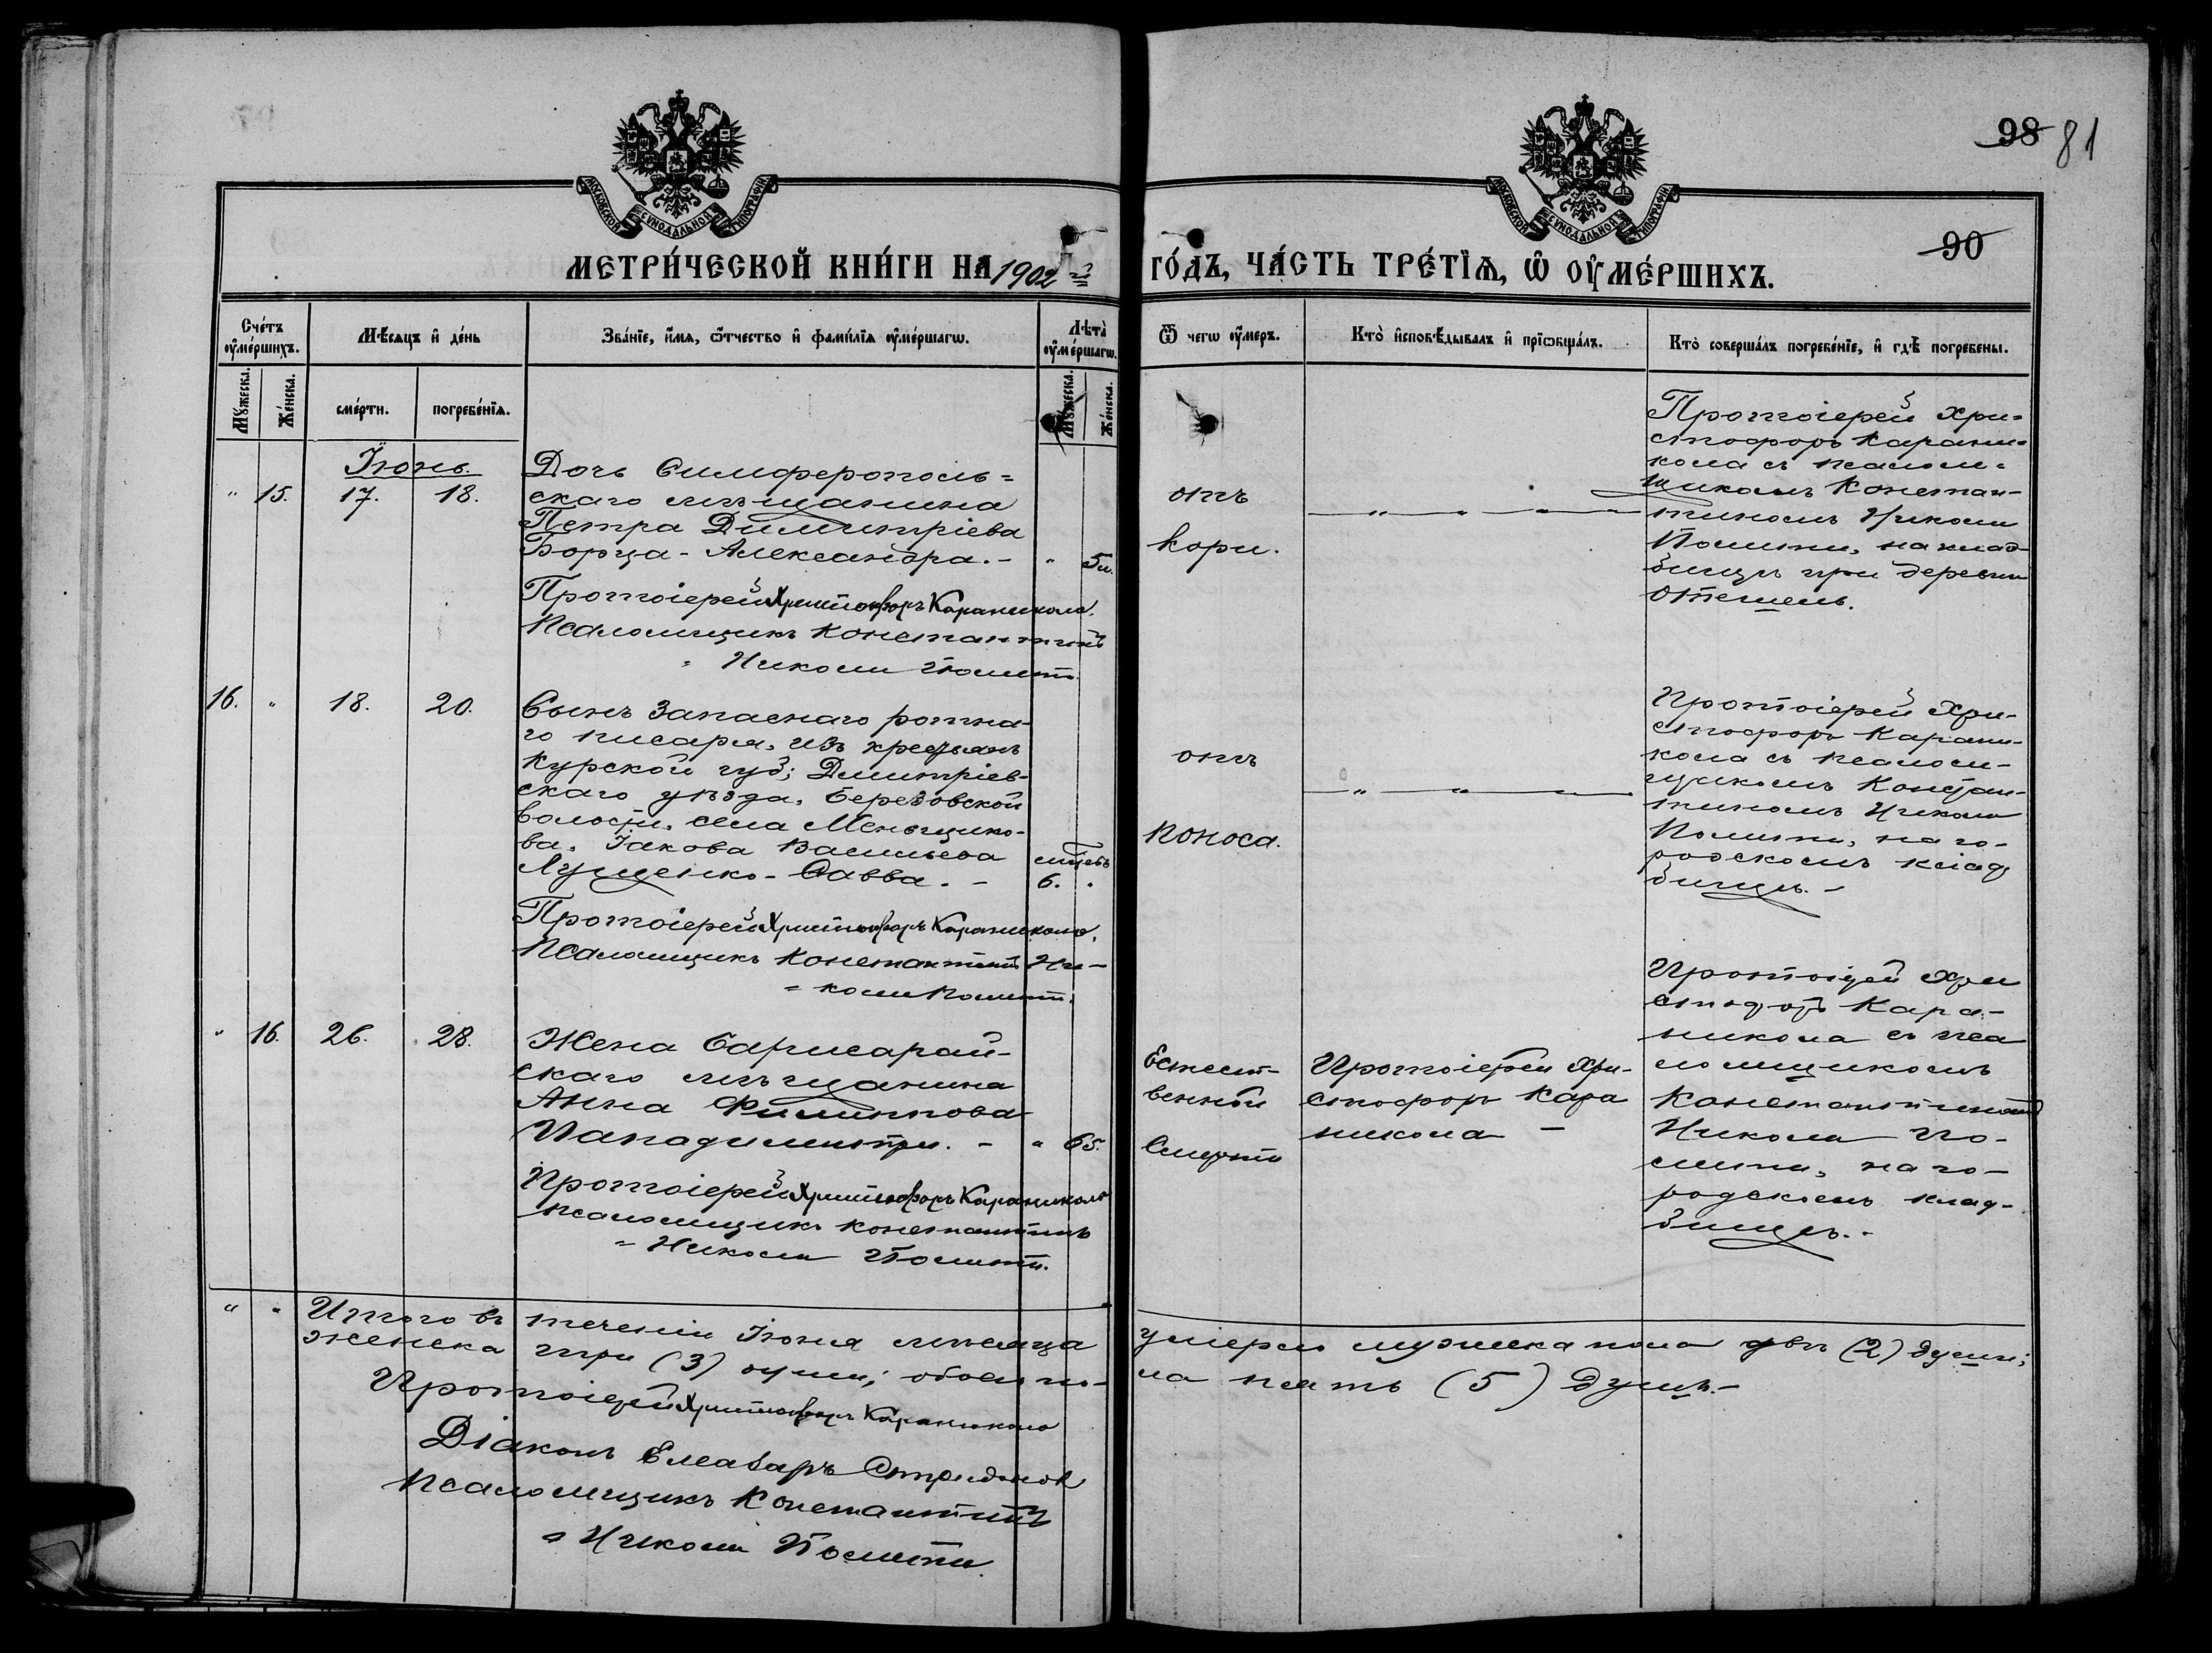 98 81
90
МОСКОВСКОЙ СѴНОДАЛЬНОЙ ТИПОГРАФІИ
МОСКОВСКОЙ СѴНОДАЛЬНОЙ ТИПОГРАФІИ
МЕТРИ́ЧЕСКОЙ КНИ́ГИ НА 1902 й
ГО́ДЪ, ЧА́СТЬ ТРЕ́ТІѦ, Ѡ ОУ҆МЕ́РШИХЪ.
Сче́тъ
оу҆ме́ршихъ.
Мѣ́сѧцъ и҆ де́нь
Зва́нїе, и҆́мѧ, ѻ҆́тчество и҆ фами́лїѧ оу҆ме́ршагѡ.
Лѣта̀
оу҆ме́ршагѡ.
Мꙋ́жеска.
Же́нска.
сме́рти.
погребе́нїѧ.
Мꙋ́жеска.
Же́нска.
Ѿ чегѡ оу҆́меръ.
Кто̀ и҆сповѣ́дывалъ и҆ прїѡбща́лъ.
Кто̀ соверша́лъ погребе́нїе, и҆ гдѣ̀ погребены.
Іюнь.
" 15. 17. 18.
Дочь Симферополь=
скаго мѣщанина
Петра Димитріева
Борца - Александра. - " 5 м.
Протоіерей Христофоръ Караникола.
Псаломщикъ Константинъ
= Николи Помити.
отъ
кори.
— " — " — " —
Протоіерей Хри=
стофоръ Карани=
кола съ псалом=
щикомъ Констан-
тиномъ Николи
Помити, на клад-
бищѣ при деревни
Отешель.
16. " 18. 20.
Сынъ запаснаго ротна-
го писаря, изъ крестьянъ
Курской губ; Дмитріев-
скаго уѣзда, Березовской
волости, села Меньщико-
ва, Іакова Васильева
Лущенко - Савва. -
мѣсяцевъ
6. "
Протоіерей Христофоръ Караникола.
Псаломщикъ Константинъ Ни-
= коли Помити.
отъ
поноса.
— " — " — " —
Протоіерей Хри-
стофоръ Карани-
кола съ псалом-
щикомъ Констан-
тиномъ Николи
Помити, на го-
родскомъ клад
бищѣ. -
" 16. 26. 28.
Жена Бахчисарай-
скаго мѣщанина
Анна Филиппова
Пападимитри. - " 65.
Протоіерей Христофоръ Караникола
Псаломщикъ Константинъ
= Николи Помити.
Естест-
венной
смерти
Протоіерей Хри-
стофоръ Кара
никола -
Протоіерей Хри
стофоръ Кара-
никола съ пса
ломщикомъ
Константиномъ
Николи По-
мити, на го-
родскомъ клад-
бищѣ. -
" " Итого въ теченіи Іюня мѣсяца умерло мужеска пола двѣ (2) души;
женска три (3) души; обоего по-ла пять (5) душъ. -
Протоіерей Христофоръ Караникола
Діаконъ Елеазаръ
Псаломщикъ Константинъ
= Николи Помити.